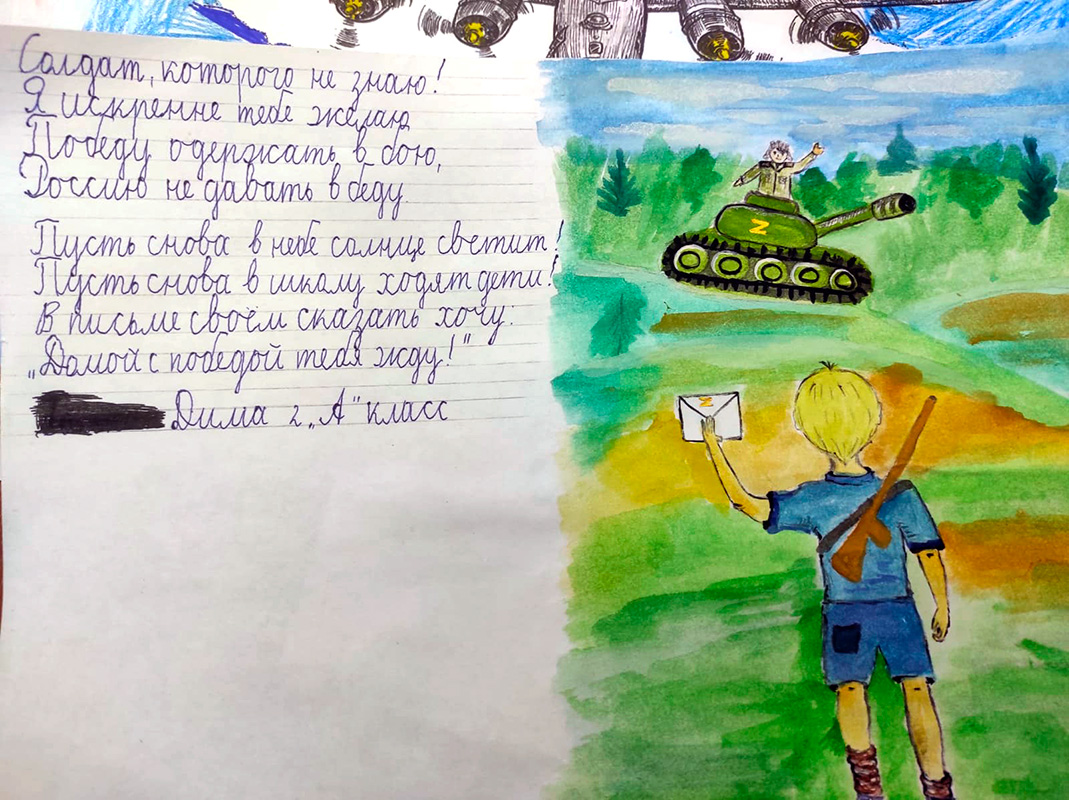 Солдат, которого не знаю!
Я искренне тебе желаю
Победу одержать в бою,
Россию не давать в беду.
Пусть снова в небе солнце светит!
Пусть снова в школу ходят дети!
В письме своём сказать хочу:
„Домой с победой тебя жду!"
Дима 2 „А" класс
Z
Z